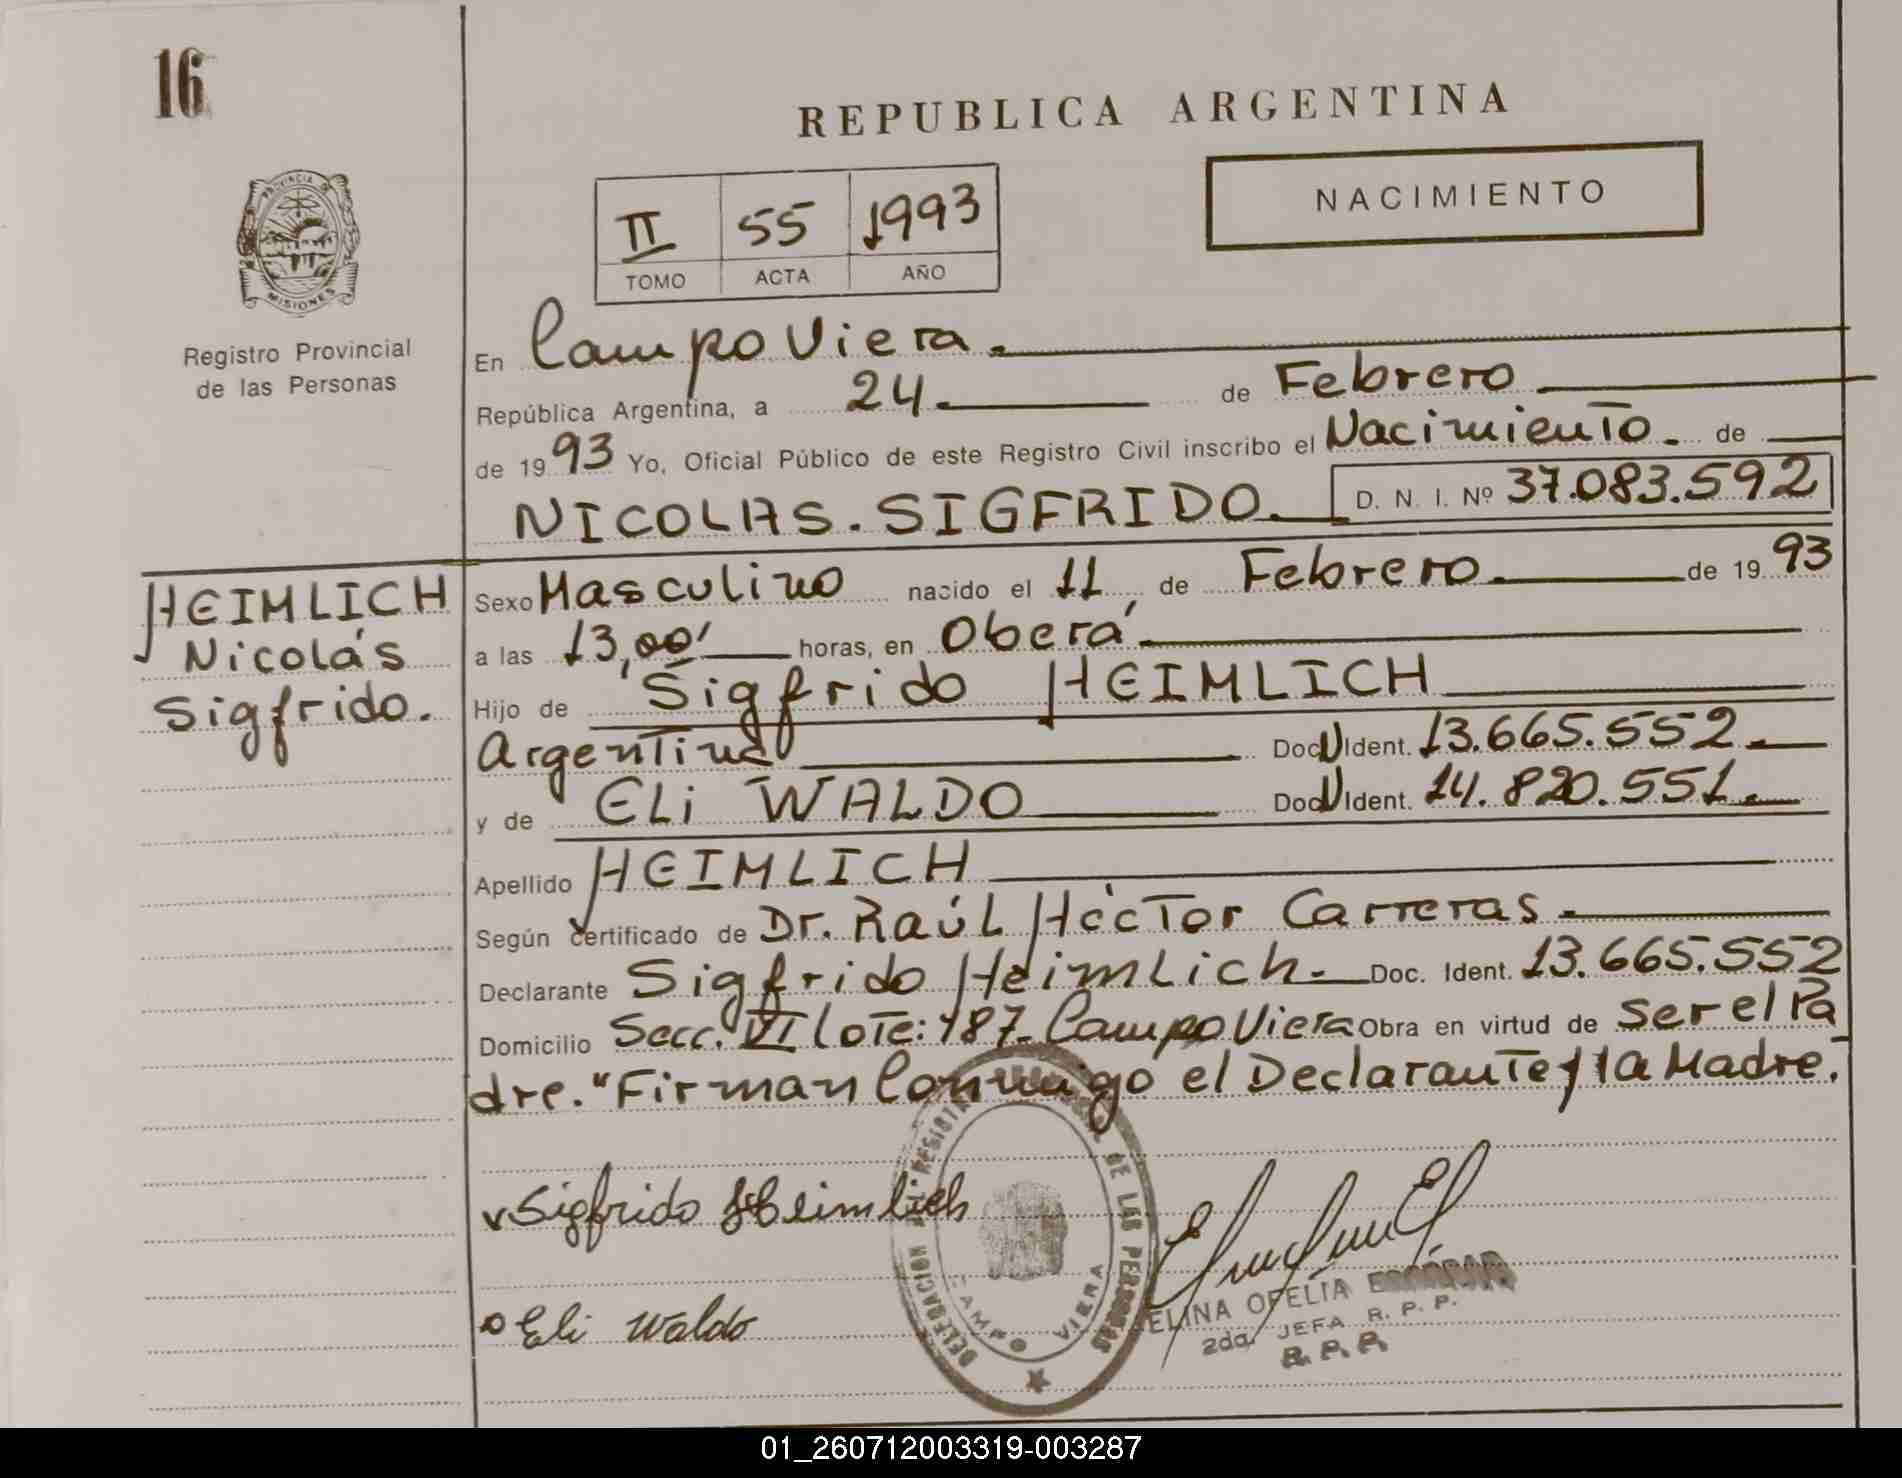 16
REPUBLICA ARGENTINA
NACIMIENTO
II 55 1993
TOMO ACTA AÑO
PROVINCIA DE
MISIONES
Registro Provincial
de las Personas
En Campo Viera.
República Argentina, a 24 de Febrero
de 1993 Yo, Oficial Público de este Registro Civil inscribo el Nacimiento. de
NICOLAS. SIGFRIDO. D. N. I. Nº 37.083.592
HEIMLICH
Nicolás
Sigfrido.
Sexo Masculino nacido el 11, de Febrero. de 1993
a las 13,00' horas, en Oberá
Hijo de Sigfrido HEIMLICH
Argentina DocNIdent. 13.665.552.
y de ELi WALDO DocNIdent. 14.820.551.
Apellido HEIMLICH
Según certificado de Dr. Raúl Héctor Carreras.
Declarante Sigfrido Heimlich. Doc. Ident. 13.665.552
Domicilio Secc. VI lote: 187. Campo Viera Obra en virtud de ser el Pa
dre. "Firman Conmigo el Declarante y la Madre.
Sigfrido Heimlich
Eli Waldo
DELEGACION REGISTRO DE LAS PERSONAS
CAMPO VIERA
ELINA OFELIA
2da. JEFA R. P. P.
R. P. P.
01_260712003319-003287